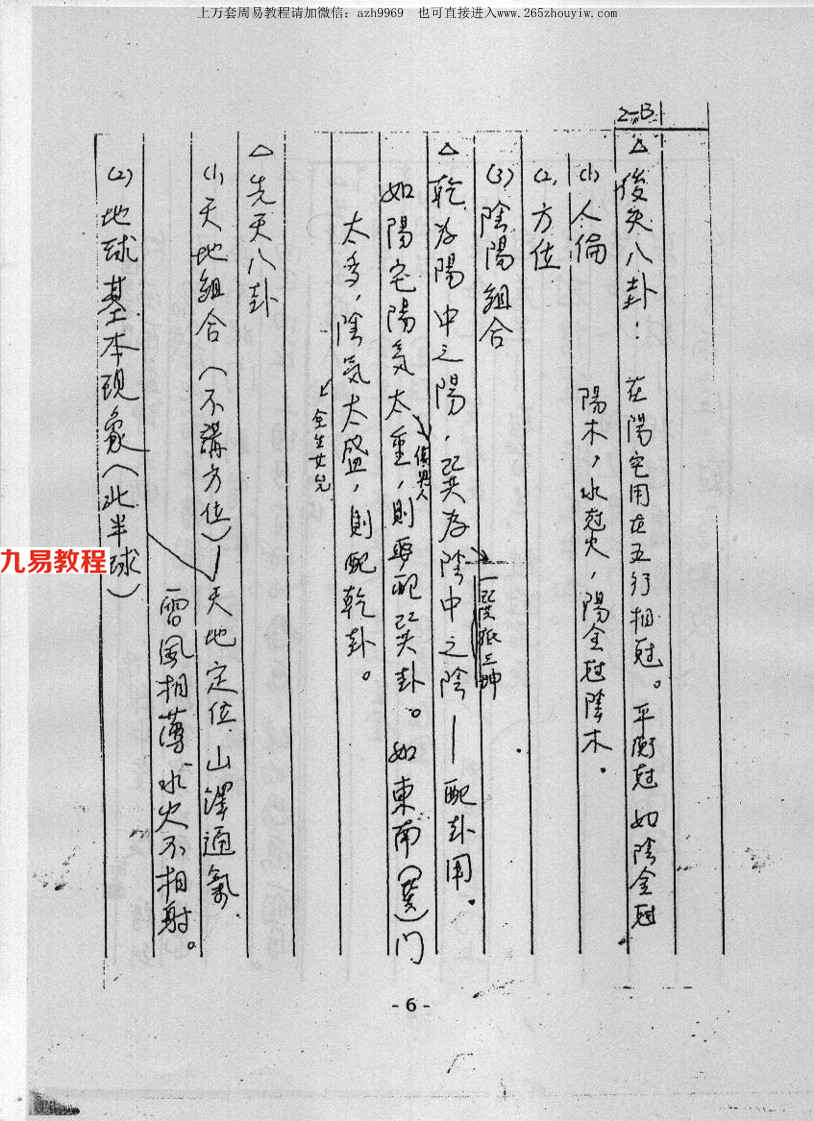 上万套周易教程请加微信：azh9969 也可直接进入www.265zhouyiw.com
2-B
△後天八卦： 在陽宅用在五行相尅。平衡尅 如陰金尅
陽木，水尅火，陽金尅陰木。
(1)人倫
(2)方位
(3)陰陽組合
△乾為陽中之陽，巽為陰中之陰—配卦用。
如陽宅陽氣太重，則要配巽卦。如東南(巽)门
太多，陰氣太盛，則配乾卦。
全生女兒
△先天八卦
(1)天地組合(不講方位)—天地定位，山澤通氣，
雷風相薄，水火不相射。
(2)地球基本現象(北半球)
九易教程
- 6 -